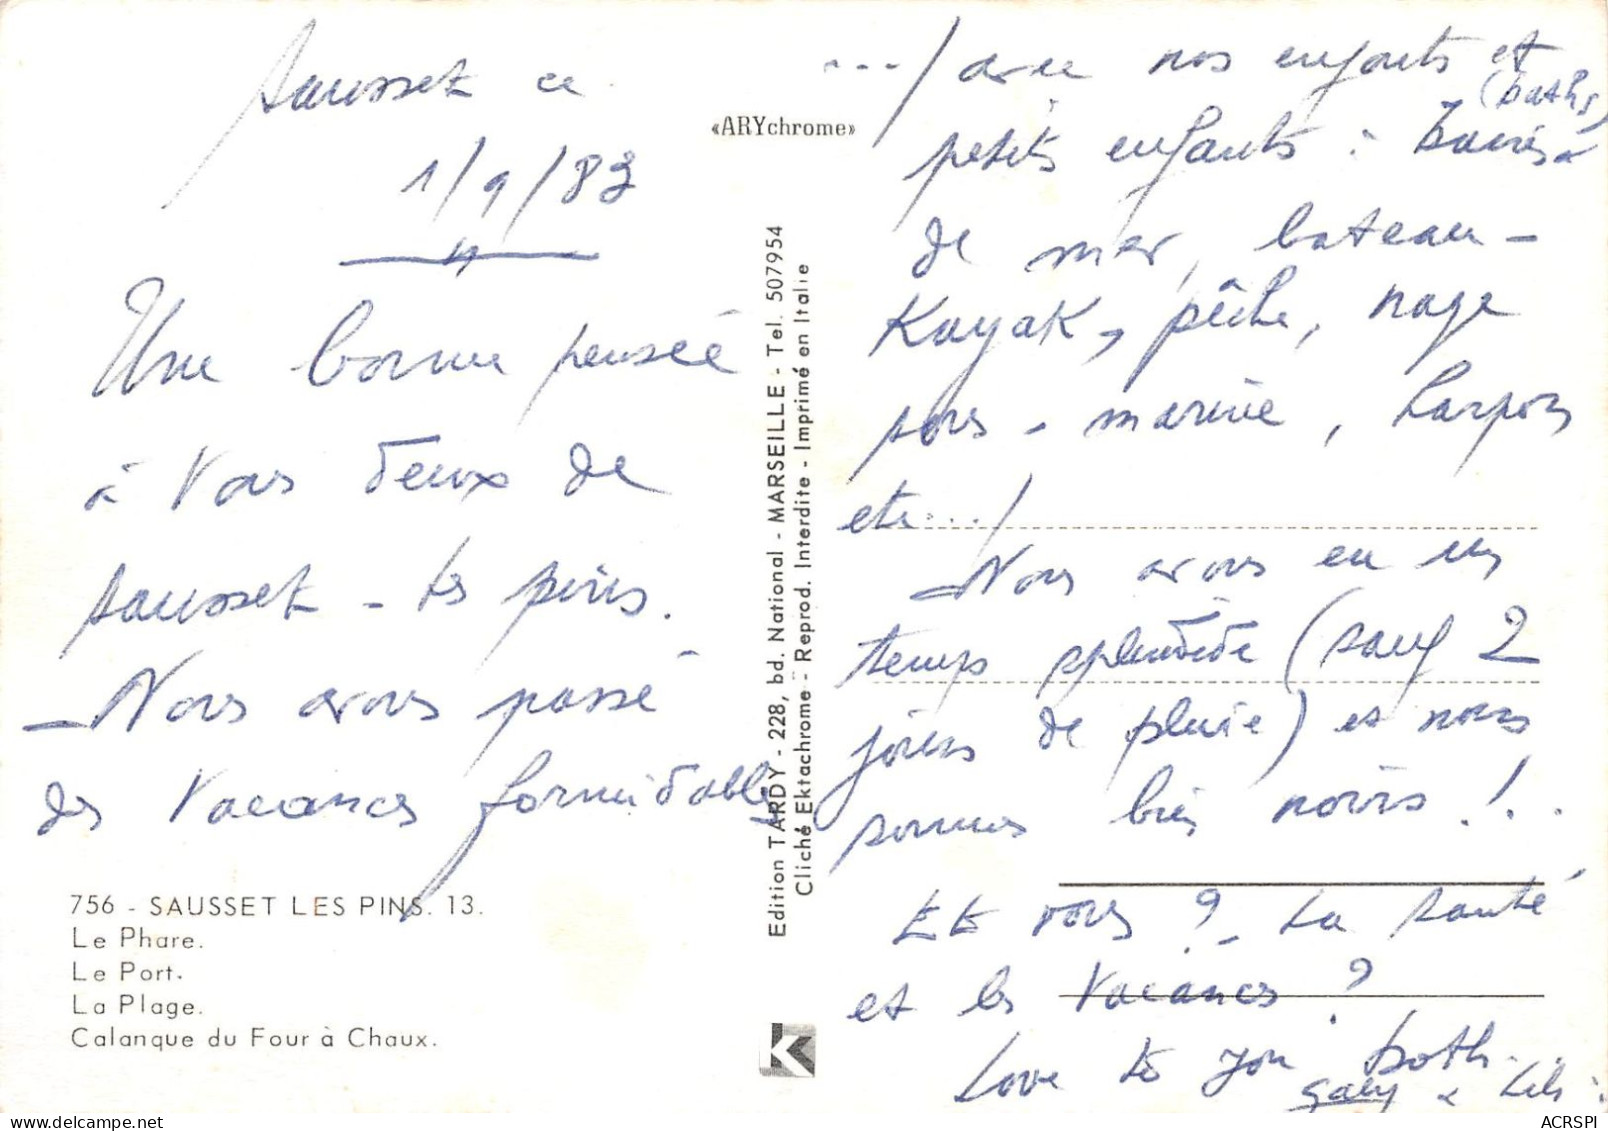 Sausset ce
1/9/83
Une bonne pensée
à Vous deux de
Sausset - les pins.
- Nous avons passé
des Vacances formidables
756 - SAUSSET LES PINS. 13.
Le Phare.
Le Port.
La Plage.
Calanque du Four à Chaux.
«ARYchrome»
Edition TARDY - 228, bd. National - MARSEILLE - Tel. 507954
Cliché Ektachrome - Reprod. Interdite - Imprimé en Italie
K
.../ avec nos enfants et
(baths)
petits enfants : bains
de mer, bateau -
Kayak, pêche, nage
sous - marine, harpons
etc.../
- Nous avons eu un
temps splendide (sauf 2
jours de pluie) et nous
sommes bien noirs !..
Et vous ? - La santé
et les Vacances ?
Love to you both...
Gaby &
ACRSPI